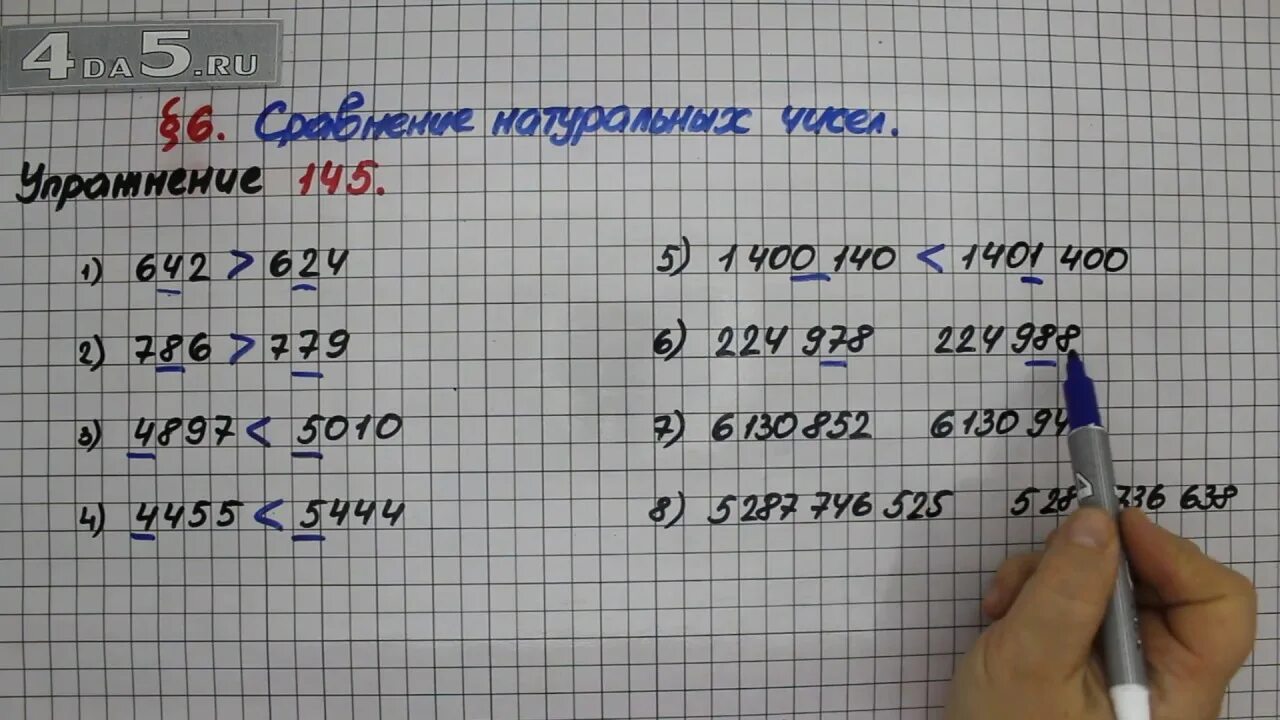 4DA5.RU
§6. Сравнение натуральных чисел.
Упражнение 145.
1) 642 > 624
2) 786 > 779
3) 4897 < 5010
4) 4455 < 5444
5) 1 400 140 < 1401 400
6) 224 978 224 988
7) 6 130 852 6 130
8) 5 287 746 525 5 736 638